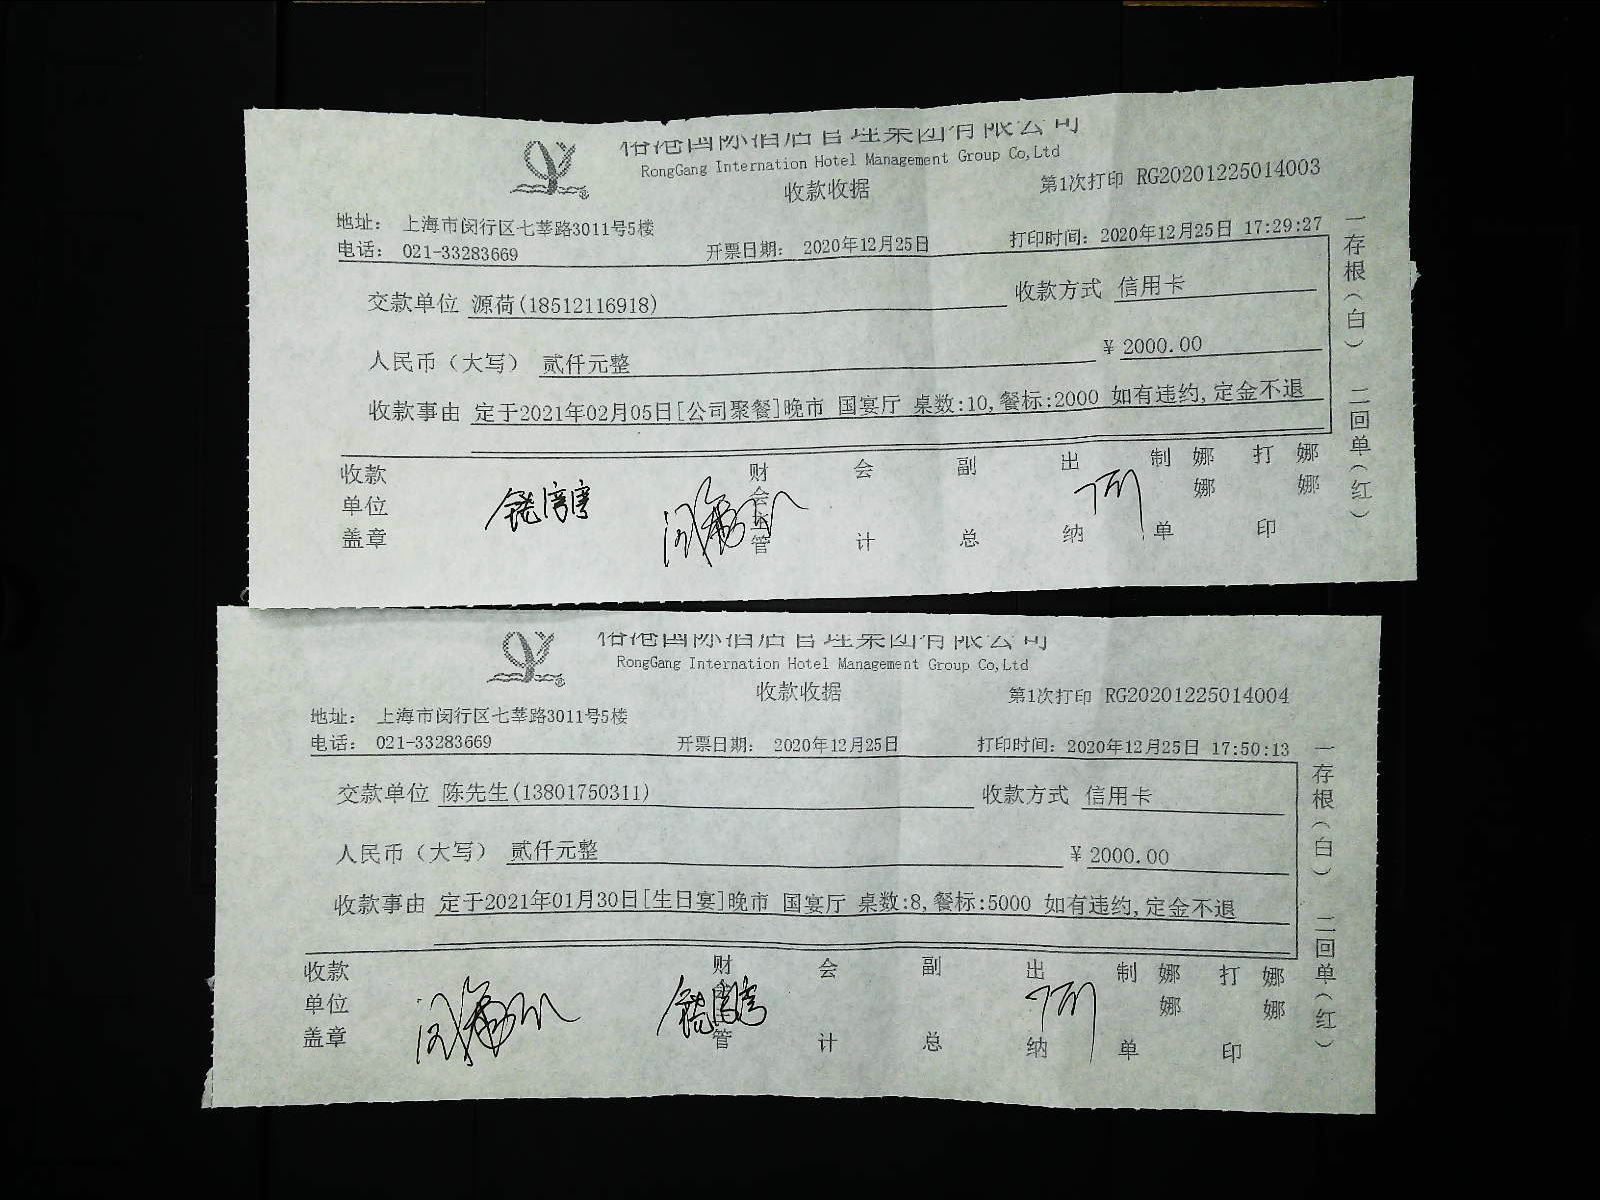 裕港国际酒店管理集团有限公司
RongGang Internation Hotel Management Group Co,Ltd
收款收据
第1次打印 RG20201225014003
地址: 上海市闵行区七莘路3011号5楼
电话: 021-33283669 开票日期: 2020年12月25日 打印时间: 2020年12月25日 17:29:27
交款单位 源荷(18512116918) 收款方式 信用卡
人民币(大写) 贰仟元整 ¥ 2000.00
收款事由 定于2021年02月05日[公司聚餐]晚市 国宴厅 桌数:10,餐标:2000 如有违约,定金不退
收款单位盖章 财会主管 会计 副总 出纳 制单 娜娜 打印 娜娜
一存根(白) 二回单(红)
裕港国际酒店管理集团有限公司
RongGang Internation Hotel Management Group Co,Ltd
收款收据
第1次打印 RG20201225014004
地址: 上海市闵行区七莘路3011号5楼
电话: 021-33283669 开票日期: 2020年12月25日 打印时间: 2020年12月25日 17:50:13
交款单位 陈先生(13801750311) 收款方式 信用卡
人民币(大写) 贰仟元整 ¥ 2000.00
收款事由 定于2021年01月30日[生日宴]晚市 国宴厅 桌数:8,餐标:5000 如有违约,定金不退
收款单位盖章 财会主管 会计 副总 出纳 制单 娜娜 打印 娜娜
一存根(白) 二回单(红)